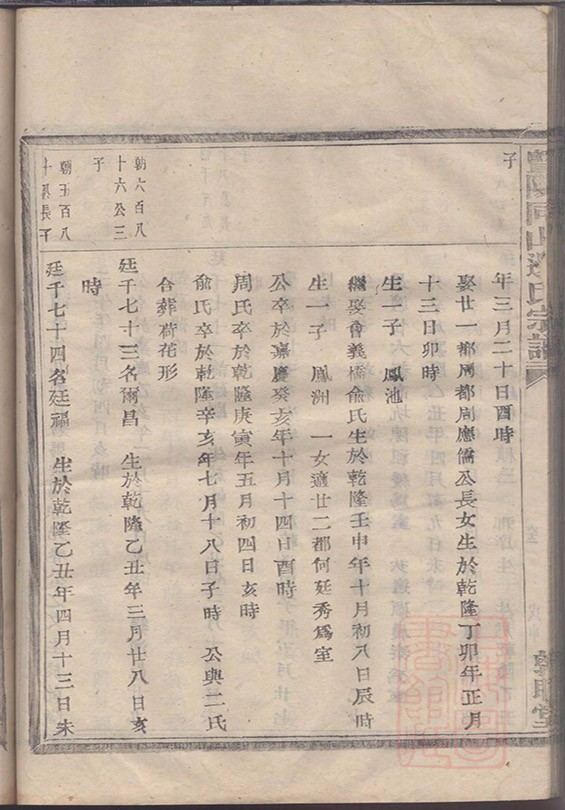 子
年三月二十日酉時
娶廿一都周都周應儒公長女生於乾隆丁卯年正月
十三日卯時
生一子 鳳池
繼娶會義橋俞氏生於乾隆壬申年十月初八日辰時
生一子 鳳洲 一女適廿二都何廷秀爲室
公卒於嘉慶癸亥年十月十四日酉時
周氏卒於乾隆庚寅年五月初四日亥時
俞氏卒於乾隆辛亥年七月十八日子時 公與二氏
合葬荷花形
朝六百八
十六公三
子
廷千七十三名爾昌 生於乾隆乙丑年三月廿八日亥
時
朝五百八
十 公長子
廷千七十四名廷福 生於乾隆乙丑年四月十三日未